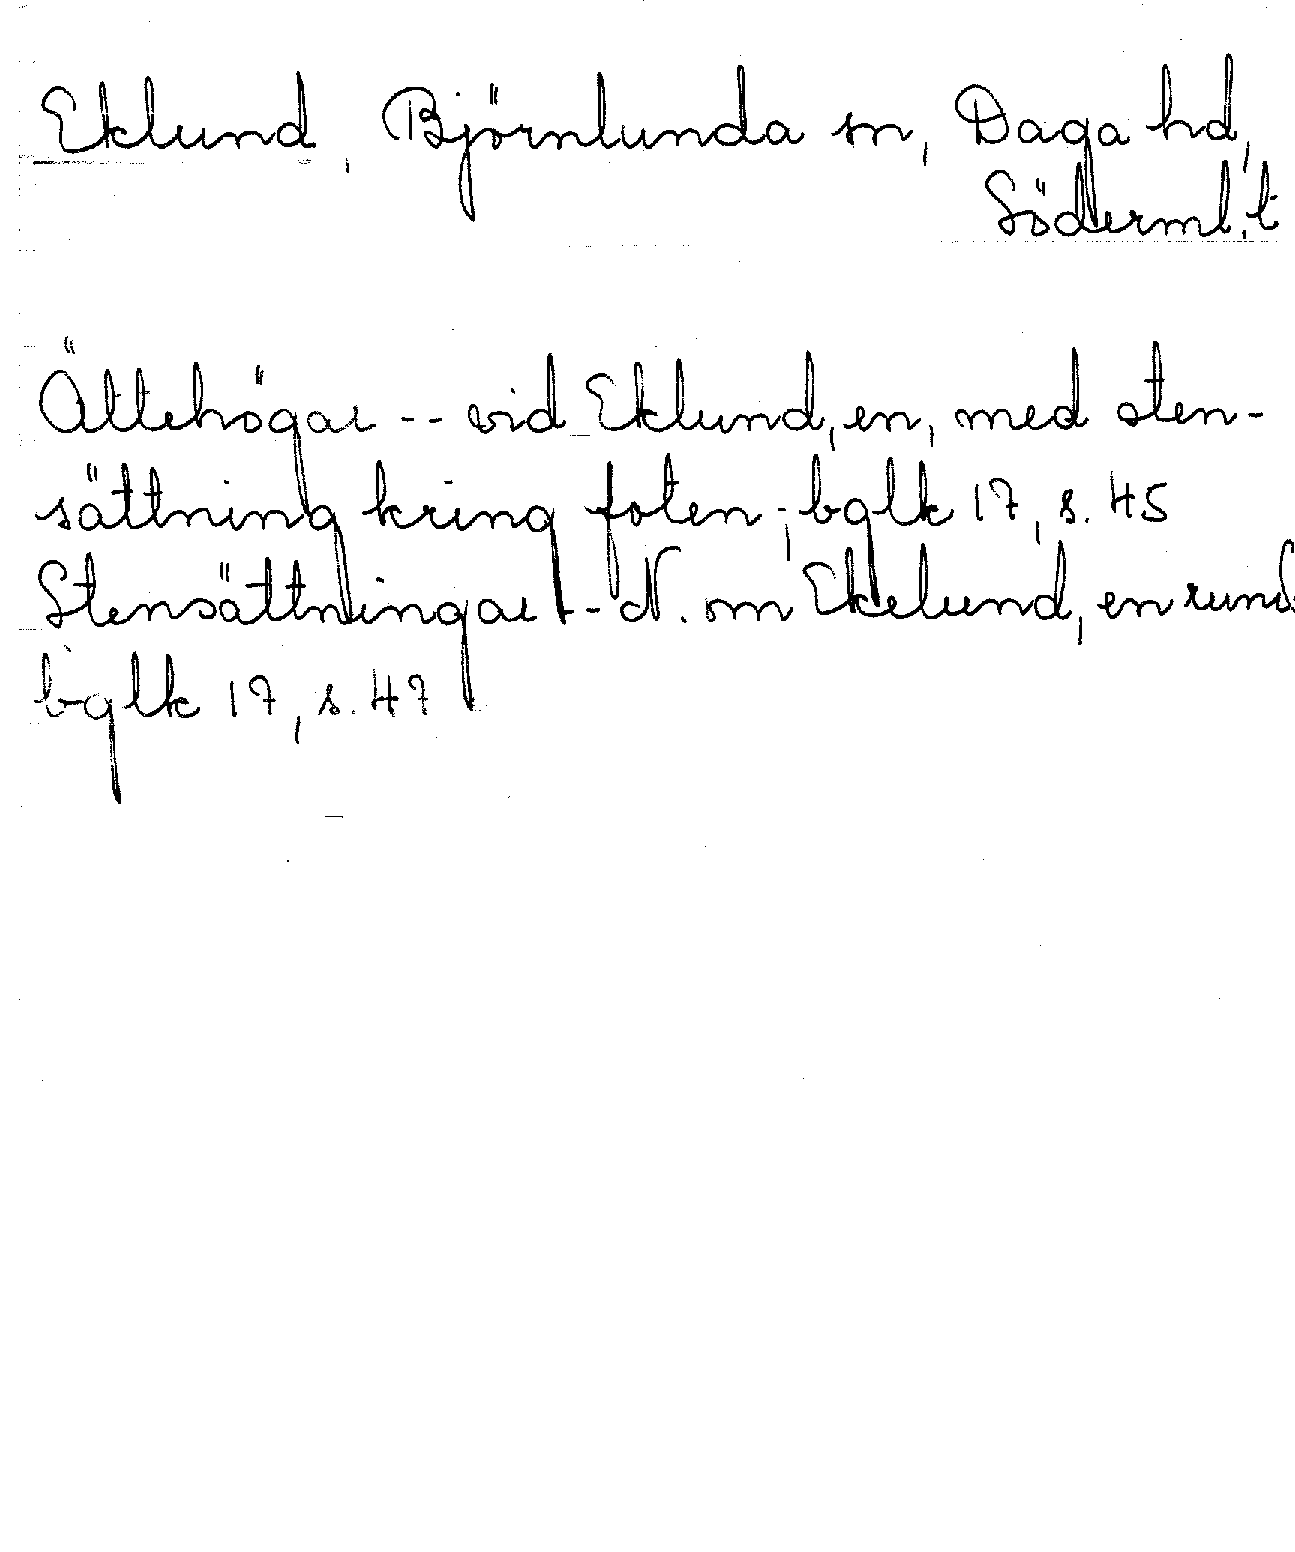 Eklund, Björnlunda sn, Daga hd,
Söderml. l
Ättehögar -- vid Eklund, en, med sten-
sättning kring foten; bglk 17, s. 45
Stensättningar -- N. om Ekelund, en rund
bglk 17, s. 47